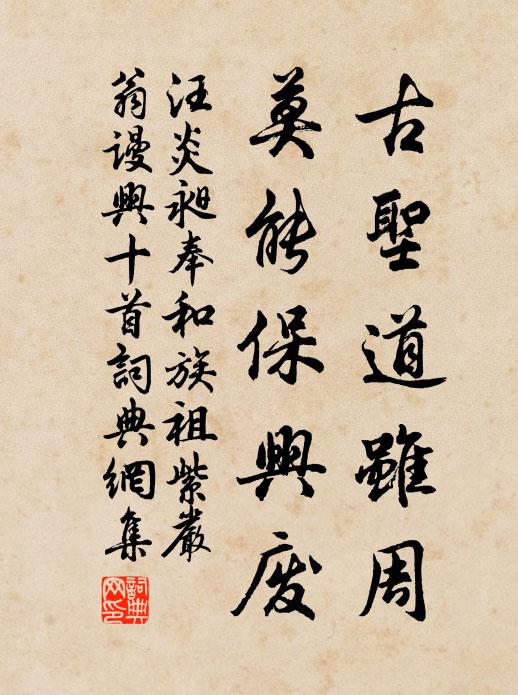 古聖道雖周
莫能保興廢
汪炎昶奉和族祖紫巖
翁謾興十首詞典網集
詞典網印